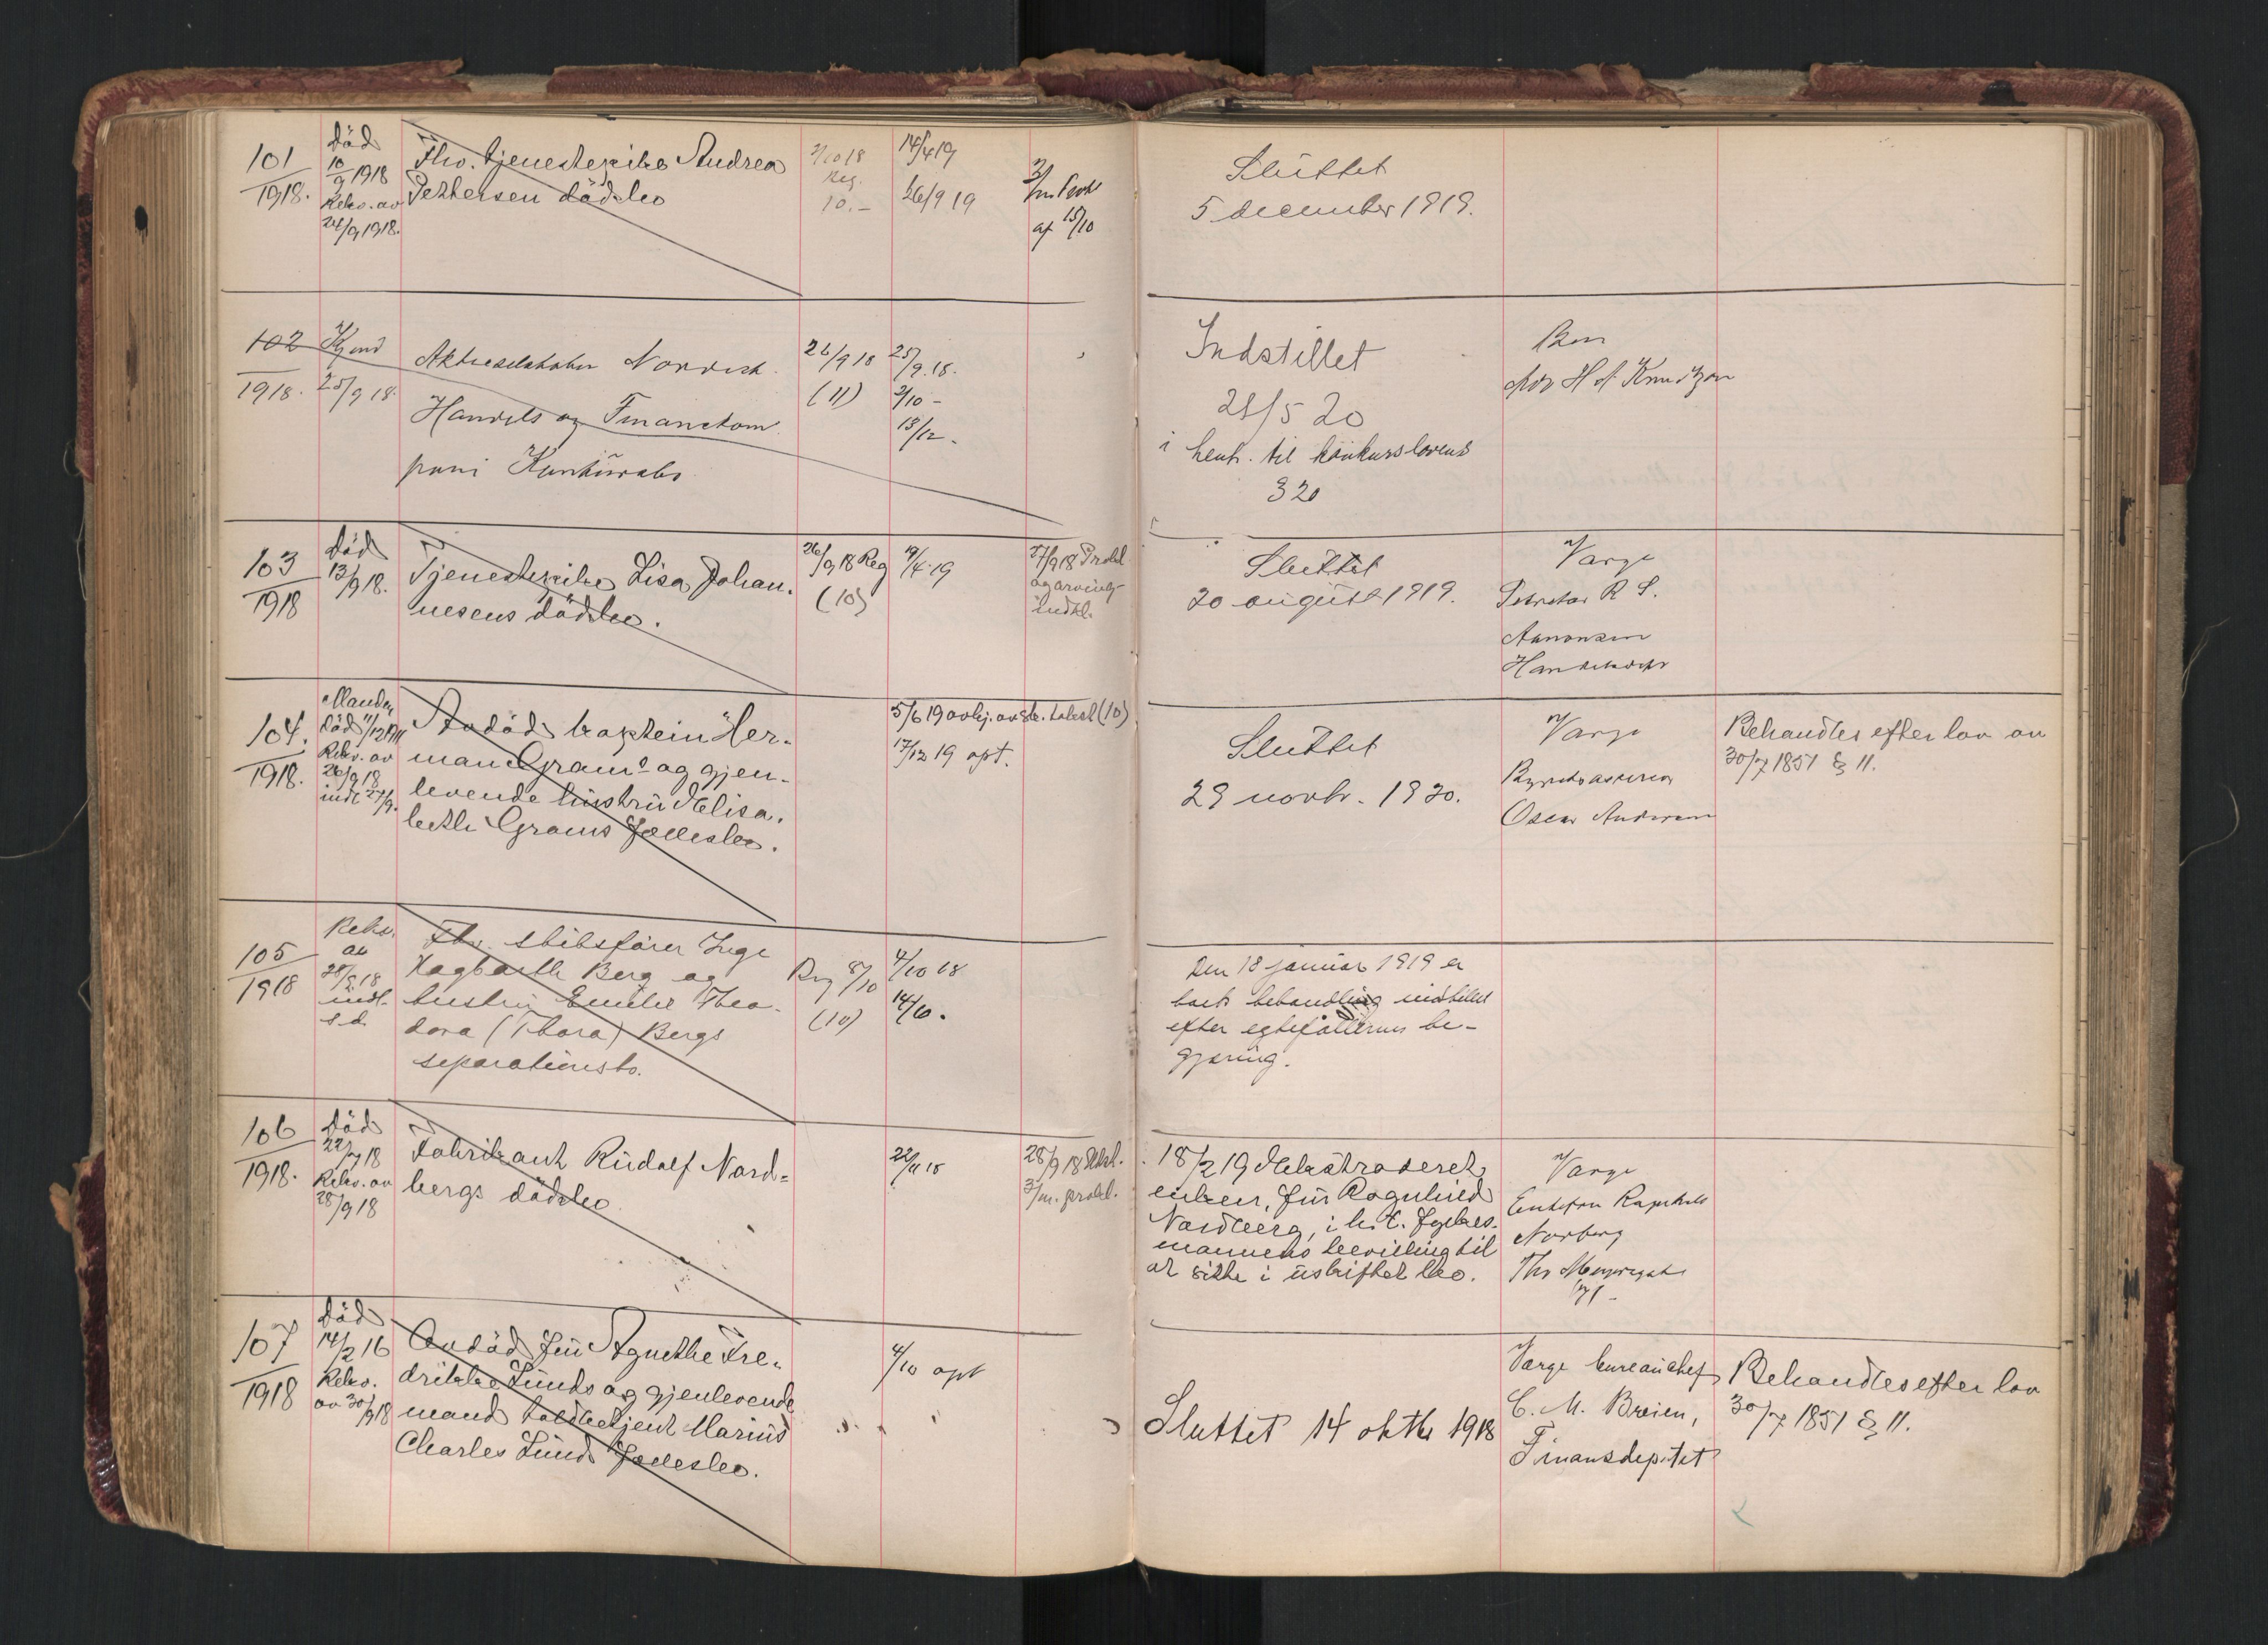 101
1918.
Död
10/9 1918
Rekv. av
26/9 1918.
Fhv. tjenestepike Andrea
Pettersen dödsbo
2/10 18
Reg.
10.-
14/4 19
26/9 19
3/m Prokl
af 15/10
Sluttet
5 december 1919.
102
1918.
Kjend
25/9 18.
Aktieselskabet Nordisk
Handels og Finanskom
pani Konkursbo
26/9 18
(11)
25/9. 18.
2/10 -
13/12 -
Indstillet
28/5 20
i henh. til konkurslovens
§ 20
Adv H A Knudtzon
103
1918
Död
13/9 18.
Tjenestepike Lisa Johan-
nesens dödsbo.
26/9 18 Reg
(10)
19/4 19
27/9 18 Prokl
og arving
indkl.
Sluttet
20 august 1919.
Værge
Sekretær R S.
Aanonsen
104.
1918.
Manden
död 1/12
Rekv. av
26/9 18
indk 27/9.
Avdöd kaptein Her-
man Grams og gjen-
levende hustru Elisa-
beth Grams fællesbo.
5/6 19 (10)
17/12 19 opt.
Sluttet
29 novbr. 1920.
Værge
Oscar Andersen
Behandles efter lov av
30/7 1851 § 11.
105
1918
Rekv.
av
28/9 18
indk.
s.d.
Fhv. skibsfører Inge
Hagbarth Berg og
hustru Emilie Theo-
dora (Thora) Bergs
separationsbo.
Reg 8/10
(10)
4/10 18
14/6.
Den 18 januar 1919 er
boets behandling indstillet
efter egtefællernes be-
gjæring.
106
1918.
Död
22/7 18
Rekv. av
28/9 18
Fabrikant Rudolf Nord-
bergs dödsbo.
22/11 18
28/9 18
3/m. prokl.
18/2 19 ekstraderet
enken, fru Ragnhild
Nordberg, i h.t. fylkes-
mannens bevilling til
at sitte i uskiftet bo.
Værge
Enkefru Ragnhild
Norberg
Ths Meyersgate
71 -
107
1918
Död
14/2 16
Rekv.
av 30/9 18
Avdöd fru Agnethe Fre-
drikke Lunds og gjenlevende
mand toldbetjent Marius
Charles Lunds fællesbo.
4/10 opt
Sluttet 14 oktbr 1918
Værge bureauchef
C. M. Breien,
Finansdeptet
Behandles efter lov
30/7 1851 § 11.